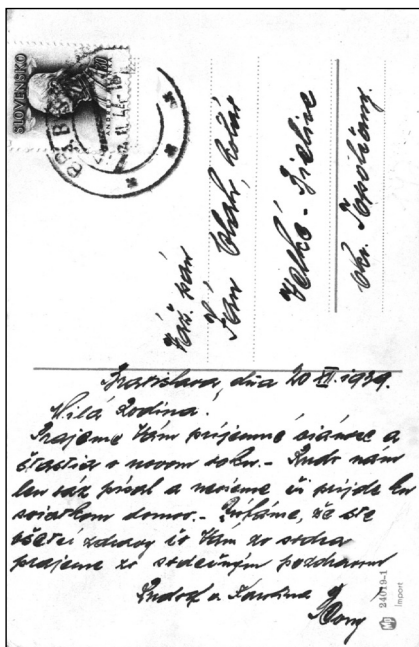 SLOVENSKO
Váž. pán
Ján Blaho, kolár
Veľké-Bielice
okr. Topoľčany.
Bratislava, dňa 20 XII. 1939.
Milá Rodina!
Prajeme Vám príjemné vianoce a
šťastia v novom roku.- Rudo nám
len raz písal a nevieme či príjde ku
sviatkom domov.- Dúfáme, že ste
všetci zdravý čo Vám zo srdca
prajeme so srdečným pozdravom
Rudolf a Karolina
24019-1
Import